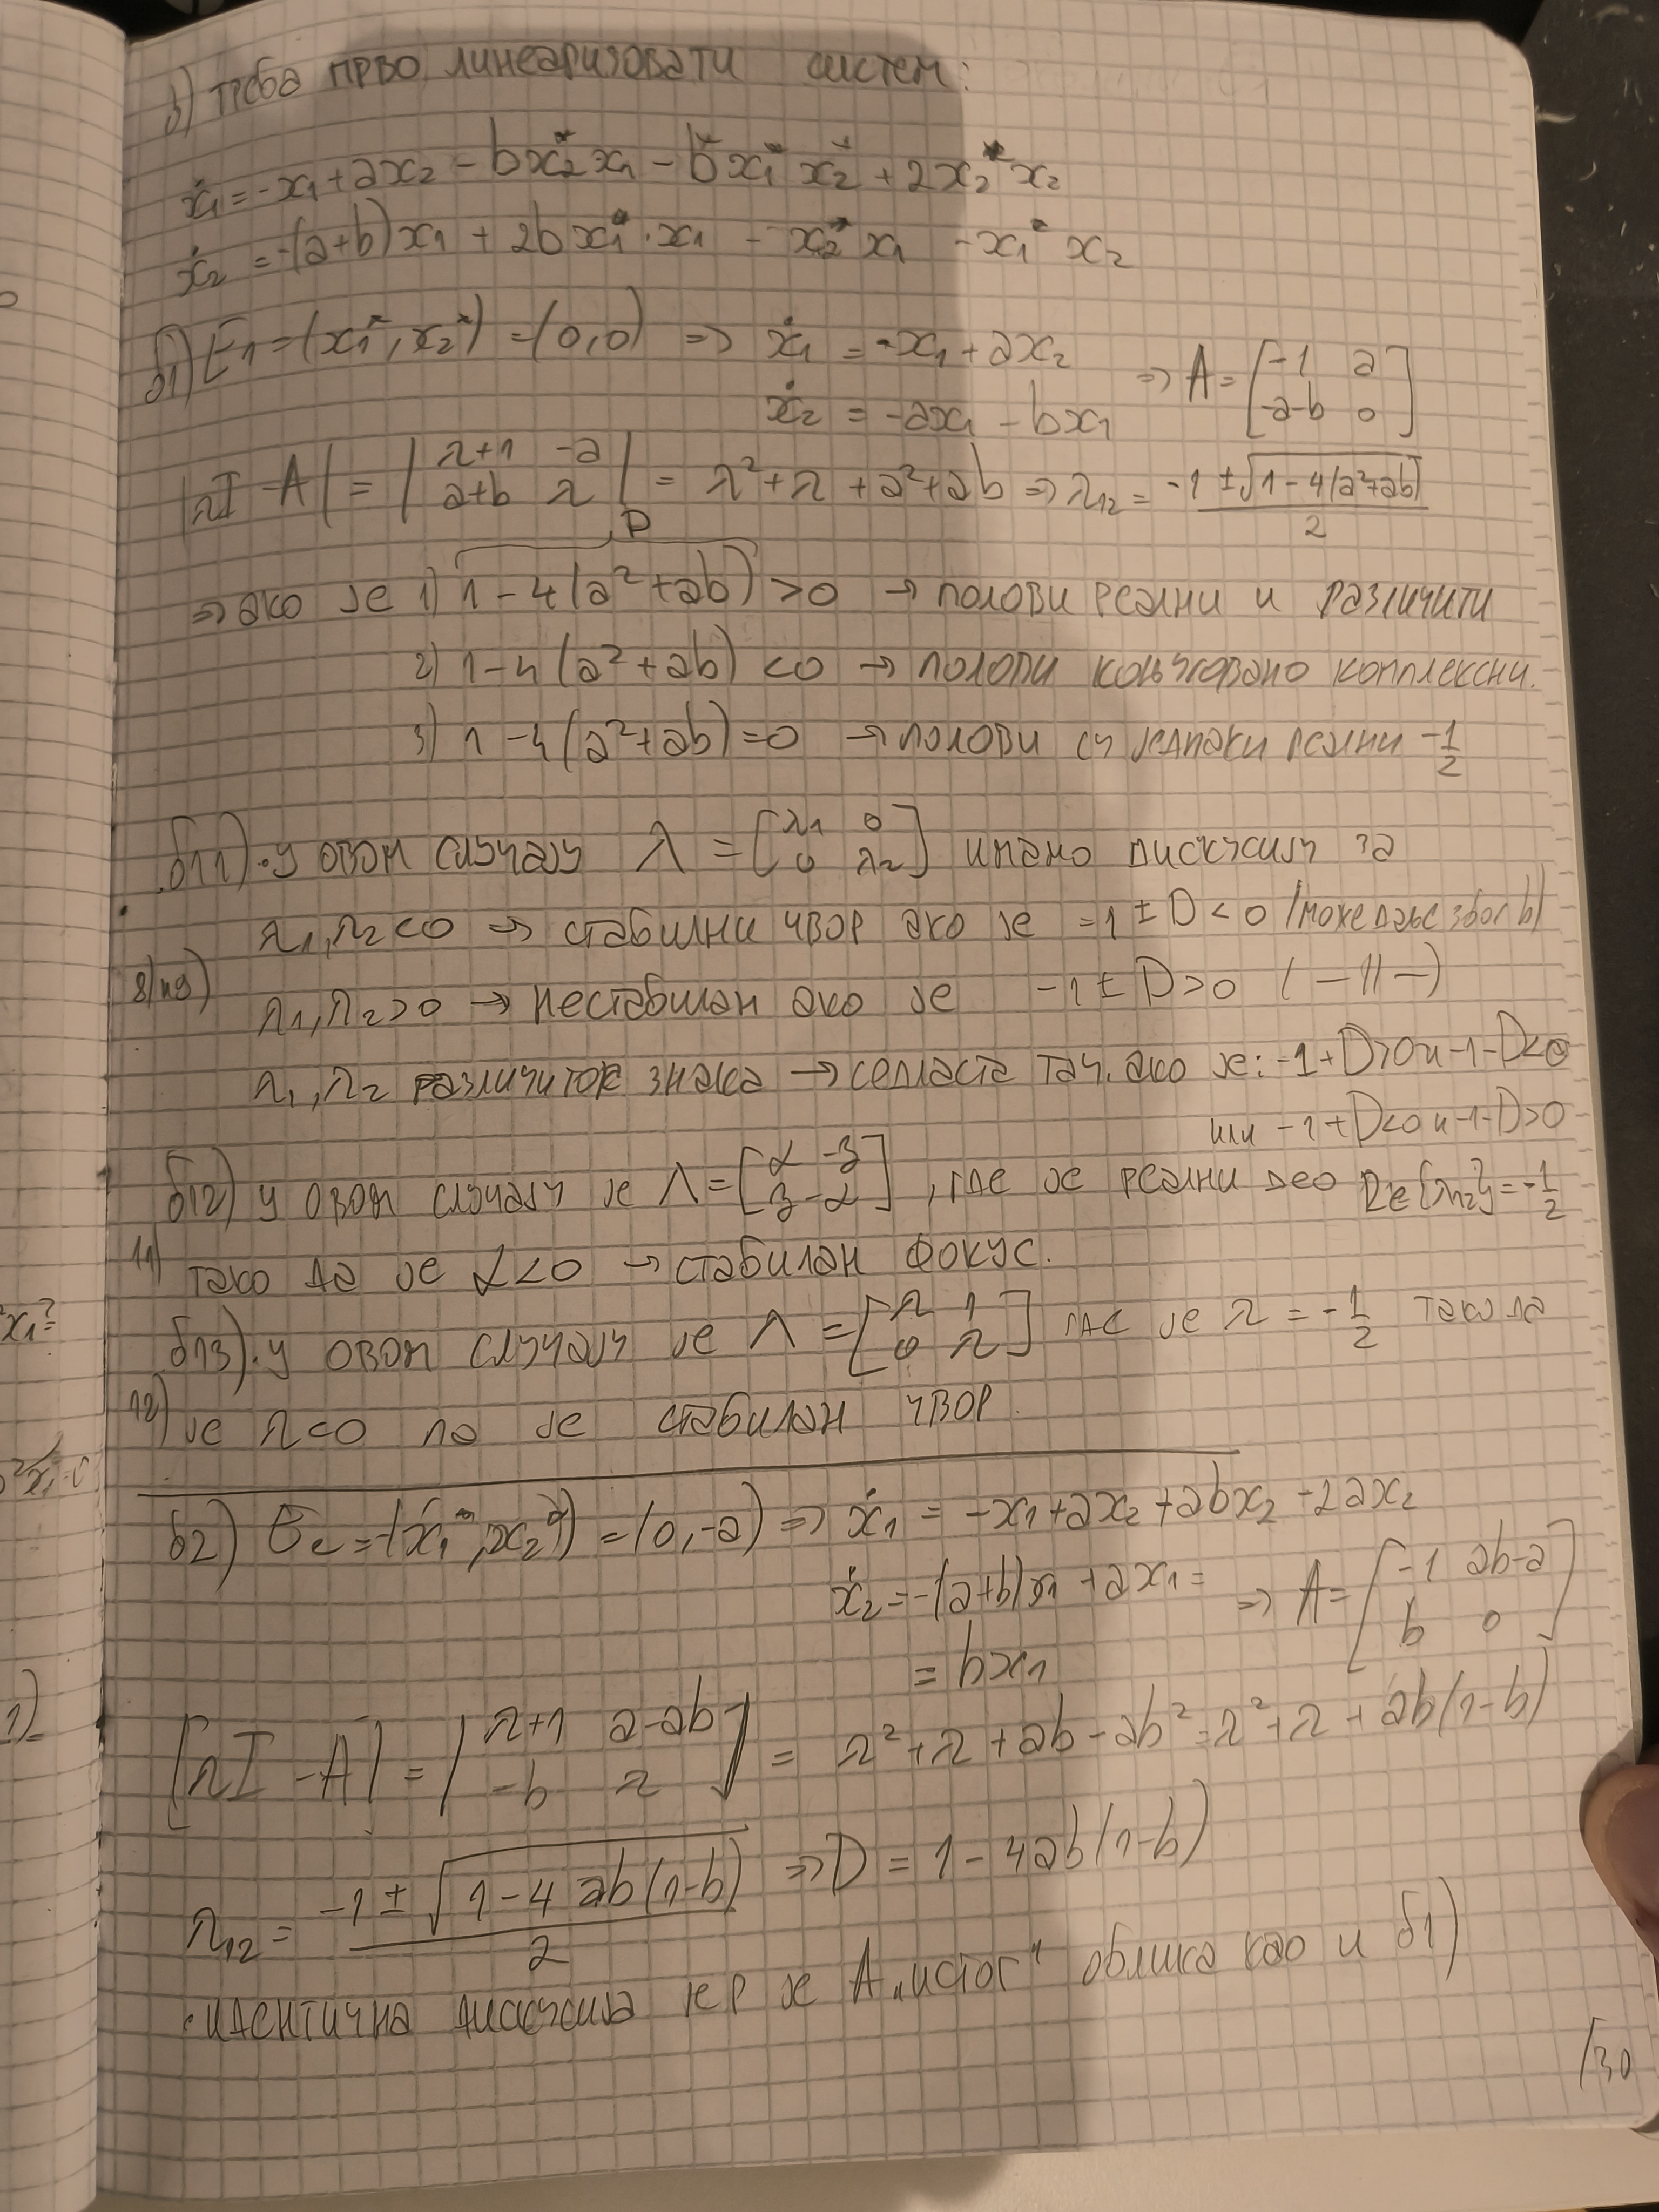 б) треба прво линеаризовати систем:
ẋ₁ = -x₁ + ax₂ - bx₂*x₁ - bx₁*x₂ + 2x₂*x₂
ẋ₂ = -(a+b)x₁ + 2bx₁*·x₁ - x₂*x₁ - x₁*x₂
б1) E₁ = (x₁*, x₂*) = (0,0) => ẋ₁ = -x₁ + ax₂ => A = [-1 a; -a-b 0]
ẋ₂ = -ax₁ - bx₁
|λI - A| = |λ+1 -a; a+b λ| = λ² + λ + a² + ab => λ₁₂ = (-1 ± √(1 - 4(a²+ab)))/2
D
=> ако је 1) 1 - 4(a² + ab) > 0 → полови реални и различити
2) 1 - 4(a² + ab) < 0 → полови коњуговано комплексни.
3) 1 - 4(a² + ab) = 0 → полови су једнаки реални -1/2
б11) · у овом случају Λ = [λ₁ 0; 0 λ₂] имамо дискусију за
λ₁, λ₂ < 0 → стабилни чвор ако је -1 ± D < 0 (може даље због b)
λ₁, λ₂ > 0 → нестабилан ако је -1 ± D > 0 ( -||- )
λ₁, λ₂ различитог знака → седласта тач. ако је: -1 + D > 0 и -1 - D < 0
или -1 + D < 0 и -1 - D > 0
б12) у овом случају је Λ = [α -β; β -α], где је реални део Re{λ₁₂} = -1/2
11)
тако да је α < 0 → стабилан фокус.
б13) · у овом случају је Λ = [λ 1; 0 λ] где је λ = -1/2 тако да
12)
је λ < 0 па је стабилан чвор.
б2) E₂ = (x₁*, x₂*) = (0, -a) => ẋ₁ = -x₁ + ax₂ + abx₂ - 2ax₂
ẋ₂ = -(a+b)x₁ + ax₁ = => A = [-1 ab-a; b 0]
= bx₁
|λI - A| = |λ+1 a-ab; -b λ| = λ² + λ + ab - ab² = λ² + λ + ab(1-b)
λ₁₂ = (-1 ± √(1 - 4ab(1-b)))/2 => D = 1 - 4ab(1-b)
· идентична дискусија јер је A „истог" облика као и б1)
/30
x₁ =
1)